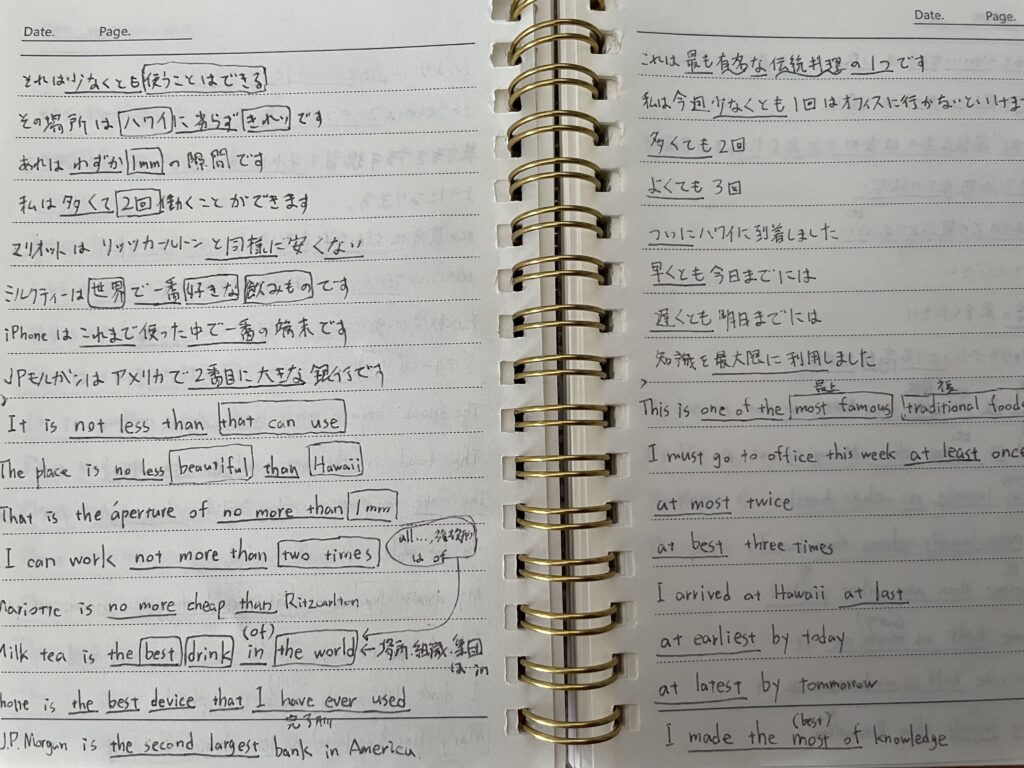 Date. Page.
それは少なくとも使うことはできる
その場所はハワイに劣らずきれいです
あれはわずか1mmの隙間です
私は多くて2回働くことができます
マリオットはリッツカールトンと同様に安くない
ミルクティーは世界で一番好きな飲みものです
iPhoneはこれまで使った中で一番の端末です
JPモルガンはアメリカで2番目に大きな銀行です
It is not less than that can use
The place is no less beautiful than Hawaii
That is the aperture of no more than 1mm
I can work not more than two times
all...,
は of
Mariotte is no more cheap than Ritzcarlton
(of)
Milk tea is the best drink in the world ← 場所・組織・集団
は in
hone is the best device that I have ever used
完了形
J.P. Morgan is the second largest bank in America.
Date. Page.
これは最も有名な伝統料理の1つです
私は今週少なくとも1回はオフィスに行かないといけま
多くても2回
よくても3回
ついにハワイに到着しました
早くとも今日までには
遅くとも明日までには
知識を最大限に利用しました
最上
This is one of the most famous traditional foods
I must go to office this week at least once
at most twice
at best three times
I arrived at Hawaii at last
at earliest by today
at latest by tommorrow
(best)
I made the most of knowledge